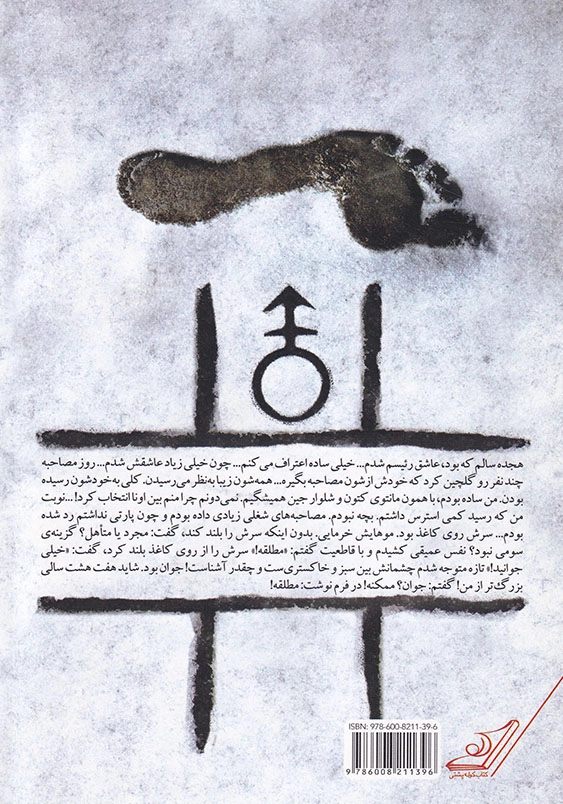 هجده سالم که بود، عاشق رئیسم شدم... خیلی ساده اعتراف می کنم... چون خیلی زیاد عاشقش شدم... روز مصاحبه
چند نفر رو گلچین کرد که خودش ازشون مصاحبه بگیره... همه‌شون زیبا به‌نظر می‌رسیدن. کلی به‌خودشون رسیده
بودن. من ساده بودم، با همون مانتوی کتون و شلوار جین همیشگیم. نمی‌دونم چرا منم بین اونا انتخاب کرد!... نوبت
من که رسید کمی استرس داشتم. بچه نبودم. مصاحبه‌های شغلی زیادی داده بودم و چون پارتی نداشتم رد شده
بودم... سرش روی کاغذ بود. موهایش خرمایی. بدون اینکه سرش را بلند کند، گفت: مجرد یا متأهل؟ گزینه‌ی
سومی نبود؟ نفس عمیقی کشیدم و با قاطعیت گفتم: «مطلقه!» سرش را از روی کاغذ بلند کرد، گفت: «خیلی
جوانید!» تازه متوجه شدم چشمانش بین سبز و خاکستری‌ست و چقدر آشناست! جوان بود. شاید هفت هشت سالی
بزرگ‌تر از من! گفتم: جوان؟ ممکنه! در فرم نوشت: مطلقه!
ISBN: 978-600-8211-39-6
9 786008 211396
کتاب کوله پشتی